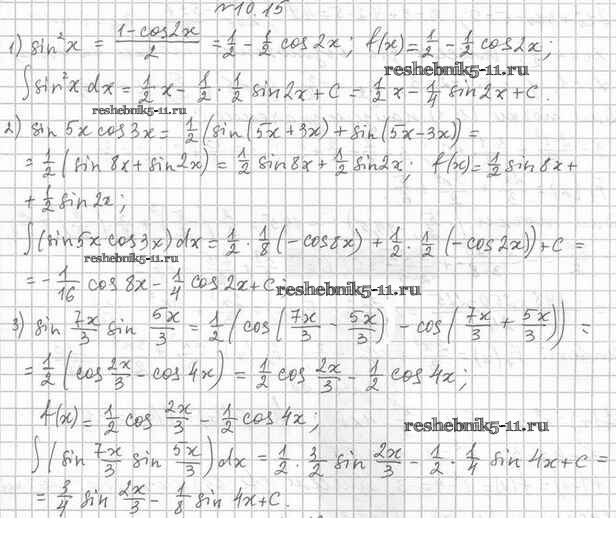 №10.15
1) sin²x = (1-cos2x)/2 = 1/2 - 1/2 cos2x; f(x) = 1/2 - 1/2 cos2x;
reshebnik5-11.ru
∫sin²x dx = 1/2 x - 1/2 · 1/2 sin2x + C = 1/2 x - 1/4 sin2x + C
reshebnik5-11.ru
2) sin 5x cos3x = 1/2 (sin(5x+3x) + sin(5x-3x)) =
= 1/2 (sin 8x + sin2x) = 1/2 sin8x + 1/2 sin2x; f(x) = 1/2 sin8x +
+ 1/2 sin2x;
∫(sin5x cos3x)dx = 1/2 · 1/8 (-cos8x) + 1/2 · 1/2 (-cos2x)) + C =
reshebnik5-11.ru
= -1/16 cos 8x - 1/4 cos 2x + C.
reshebnik5-11.ru
3) sin 7x/3 sin 5x/3 = 1/2 (cos(7x/3 - 5x/3) - cos(7x/3 + 5x/3)) =
= 1/2 (cos 2x/3 - cos 4x) = 1/2 cos 2x/3 - 1/2 cos 4x;
f(x) = 1/2 cos 2x/3 - 1/2 cos 4x;
reshebnik5-11.ru
∫(sin 7x/3 sin 5x/3)dx = 1/2 · 3/2 sin 2x/3 - 1/2 · 1/4 sin 4x + C =
= 3/4 sin 2x/3 - 1/8 sin 4x + C.